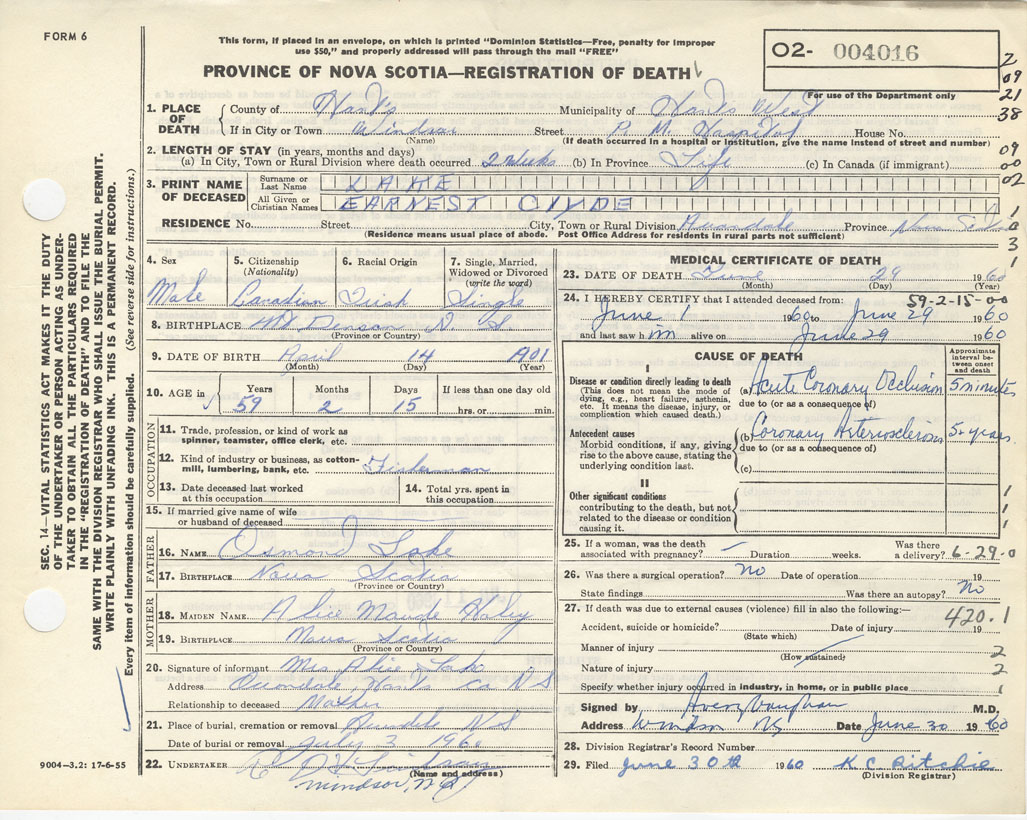 FORM 6
This form, if placed in an envelope, on which is printed "Dominion Statistics—Free, penalty for improper
use $50," and properly addressed will pass through the mail "FREE"
O2- 004016
(For use of the Department only
PROVINCE OF NOVA SCOTIA—REGISTRATION OF DEATH
2
09
21
38
09
00
02
1
0
3
1
1. PLACE OF DEATH
County of Hants Municipality of Hants West
If in City or Town Windsor Street P. M. Hospital House No.
(Name) (If death occurred in a hospital or Institution, give the name instead of street and number)
2. LENGTH OF STAY (in years, months and days)
(a) In City, Town or Rural Division where death occurred 2 weeks (b) In Province Life (c) In Canada (if immigrant)
3. PRINT NAME OF DECEASED
Surname or Last Name LAKE
All Given or Christian Names EARNEST CLYDE
RESIDENCE No. Street City, Town or Rural Division Avondale Province Nova Scotia
(Residence means usual place of abode. Post Office Address for residents in rural parts not sufficient)
4. Sex
Male
5. Citizenship
(Nationality)
Canadian
6. Racial Origin
Irish
7. Single, Married,
Widowed or Divorced
(write the word)
Single
8. BIRTHPLACE Mt Denson N. S
(Province or Country)
9. DATE OF BIRTH April 14 1901
(Month) (Day) (Year)
10. AGE in
Years Months Days If less than one day old
59 2 15 hrs. or min.
OCCUPATION
11. Trade, profession, or kind of work as
spinner, teamster, office clerk, etc.
12. Kind of industry or business, as cotton-
mill, lumbering, bank, etc. Fisherman
13. Date deceased last worked
at this occupation
14. Total yrs. spent in
this occupation
15. If married give name of wife
or husband of deceased
FATHER
16. NAME Osmond Lake
17. BIRTHPLACE Nova Scotia
(Province or Country)
MOTHER
18. MAIDEN NAME Alice Maude
19. BIRTHPLACE Nova Scotia
(Province or Country)
20. Signature of informant Mrs Alice Lake
Address Avondale, Hants Co N S
Relationship to deceased Mother
21. Place of burial, cremation or removal Avondale N S
Date of burial or removal July 3 1960
22. UNDERTAKER
(Name and address)
Windsor, N S
MEDICAL CERTIFICATE OF DEATH
23. DATE OF DEATH June 29 1960
(Month) (Day)
24. I HEREBY CERTIFY that I attended deceased from: 59-2-15-00
June 1 1960 to June 29 1960
and last saw him alive on June 29 1960
CAUSE OF DEATH
Approximate
interval be-
tween onset
and death
I
Disease or condition directly leading to death
(This does not mean the mode of
dying, e.g., heart failure, asthenia,
etc. It means the disease, injury, or
complication which caused death.)
(a) Acute Coronary Occlusion 5 minutes
due to (or as a consequence of)
Antecedent causes
Morbid conditions, if any, giving
rise to the above cause, stating the
underlying condition last.
(b) Coronary Arteriosclerosis 5 years
due to (or as a consequence of)
(c)
II
Other significant conditions
contributing to the death, but not
related to the disease or condition
causing it.
1
1
1
25. If a woman, was the death
associated with pregnancy? Duration weeks. Was there
a delivery? 6-29-0
26. Was there a surgical operation? no Date of operation 19
State findings Was there an autopsy? No
27. If death was due to external causes (violence) fill in also the following:—
420.1
Accident, suicide or homicide? Date of injury 19
(State which)
Manner of injury 2
(How sustained)
Nature of injury 2
Specify whether injury occurred in industry, in home, or in public place 1
Signed by Avery Vaughan M.D.
Address Windsor NS Date June 30 1960
28. Division Registrar's Record Number
29. Filed June 30th 1960 K C Ritchie
(Division Registrar)
SEC. 14—VITAL STATISTICS ACT MAKES IT THE DUTY
OF THE UNDERTAKER OR PERSON ACTING AS UNDER-
TAKER TO OBTAIN ALL THE PARTICULARS REQUIRED
IN THE "REGISTRATION OF DEATH" AND TO FILE THE
SAME WITH THE DIVISION REGISTRAR WHO SHALL ISSUE THE BURIAL PERMIT.
WRITE PLAINLY WITH UNFADING INK. THIS IS A PERMANENT RECORD.
Every item of information should be carefully supplied. (See reverse side for instructions.)
9004—3.2: 17-6-55